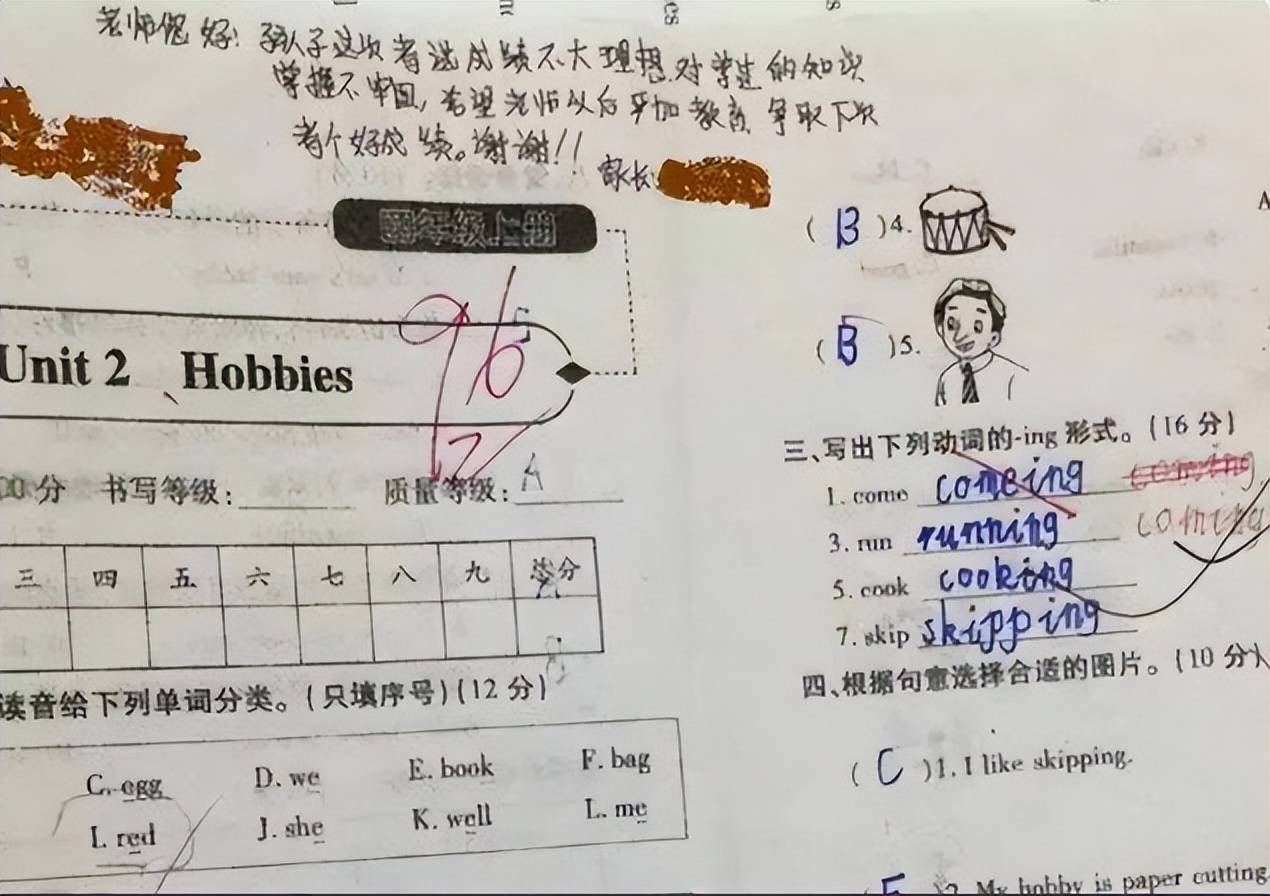 老师您好！孩子这次考试成绩不大理想对学过的知识
掌握不牢固，希望老师以后多加教育 争取下次
考个好成绩。谢谢！！
家长
四年级上册
96
Unit 2 Hobbies
00分 书写等级： 质量等级：A
三 四 五 六 七 八 九 总分
读音给下列单词分类。(只填序号)(12分)
C. egg D. we E. book F. bag
I. red J. she K. well L. me
( B )4.
( B )5.
三、写出下列动词的-ing 形式。(16分)
1. come comeing coming
coming
3. run running
5. cook cooking
7. skip skipping
四、根据句意选择合适的图片。(10分)
( C )1. I like skipping.
2. My hobby is paper cutting